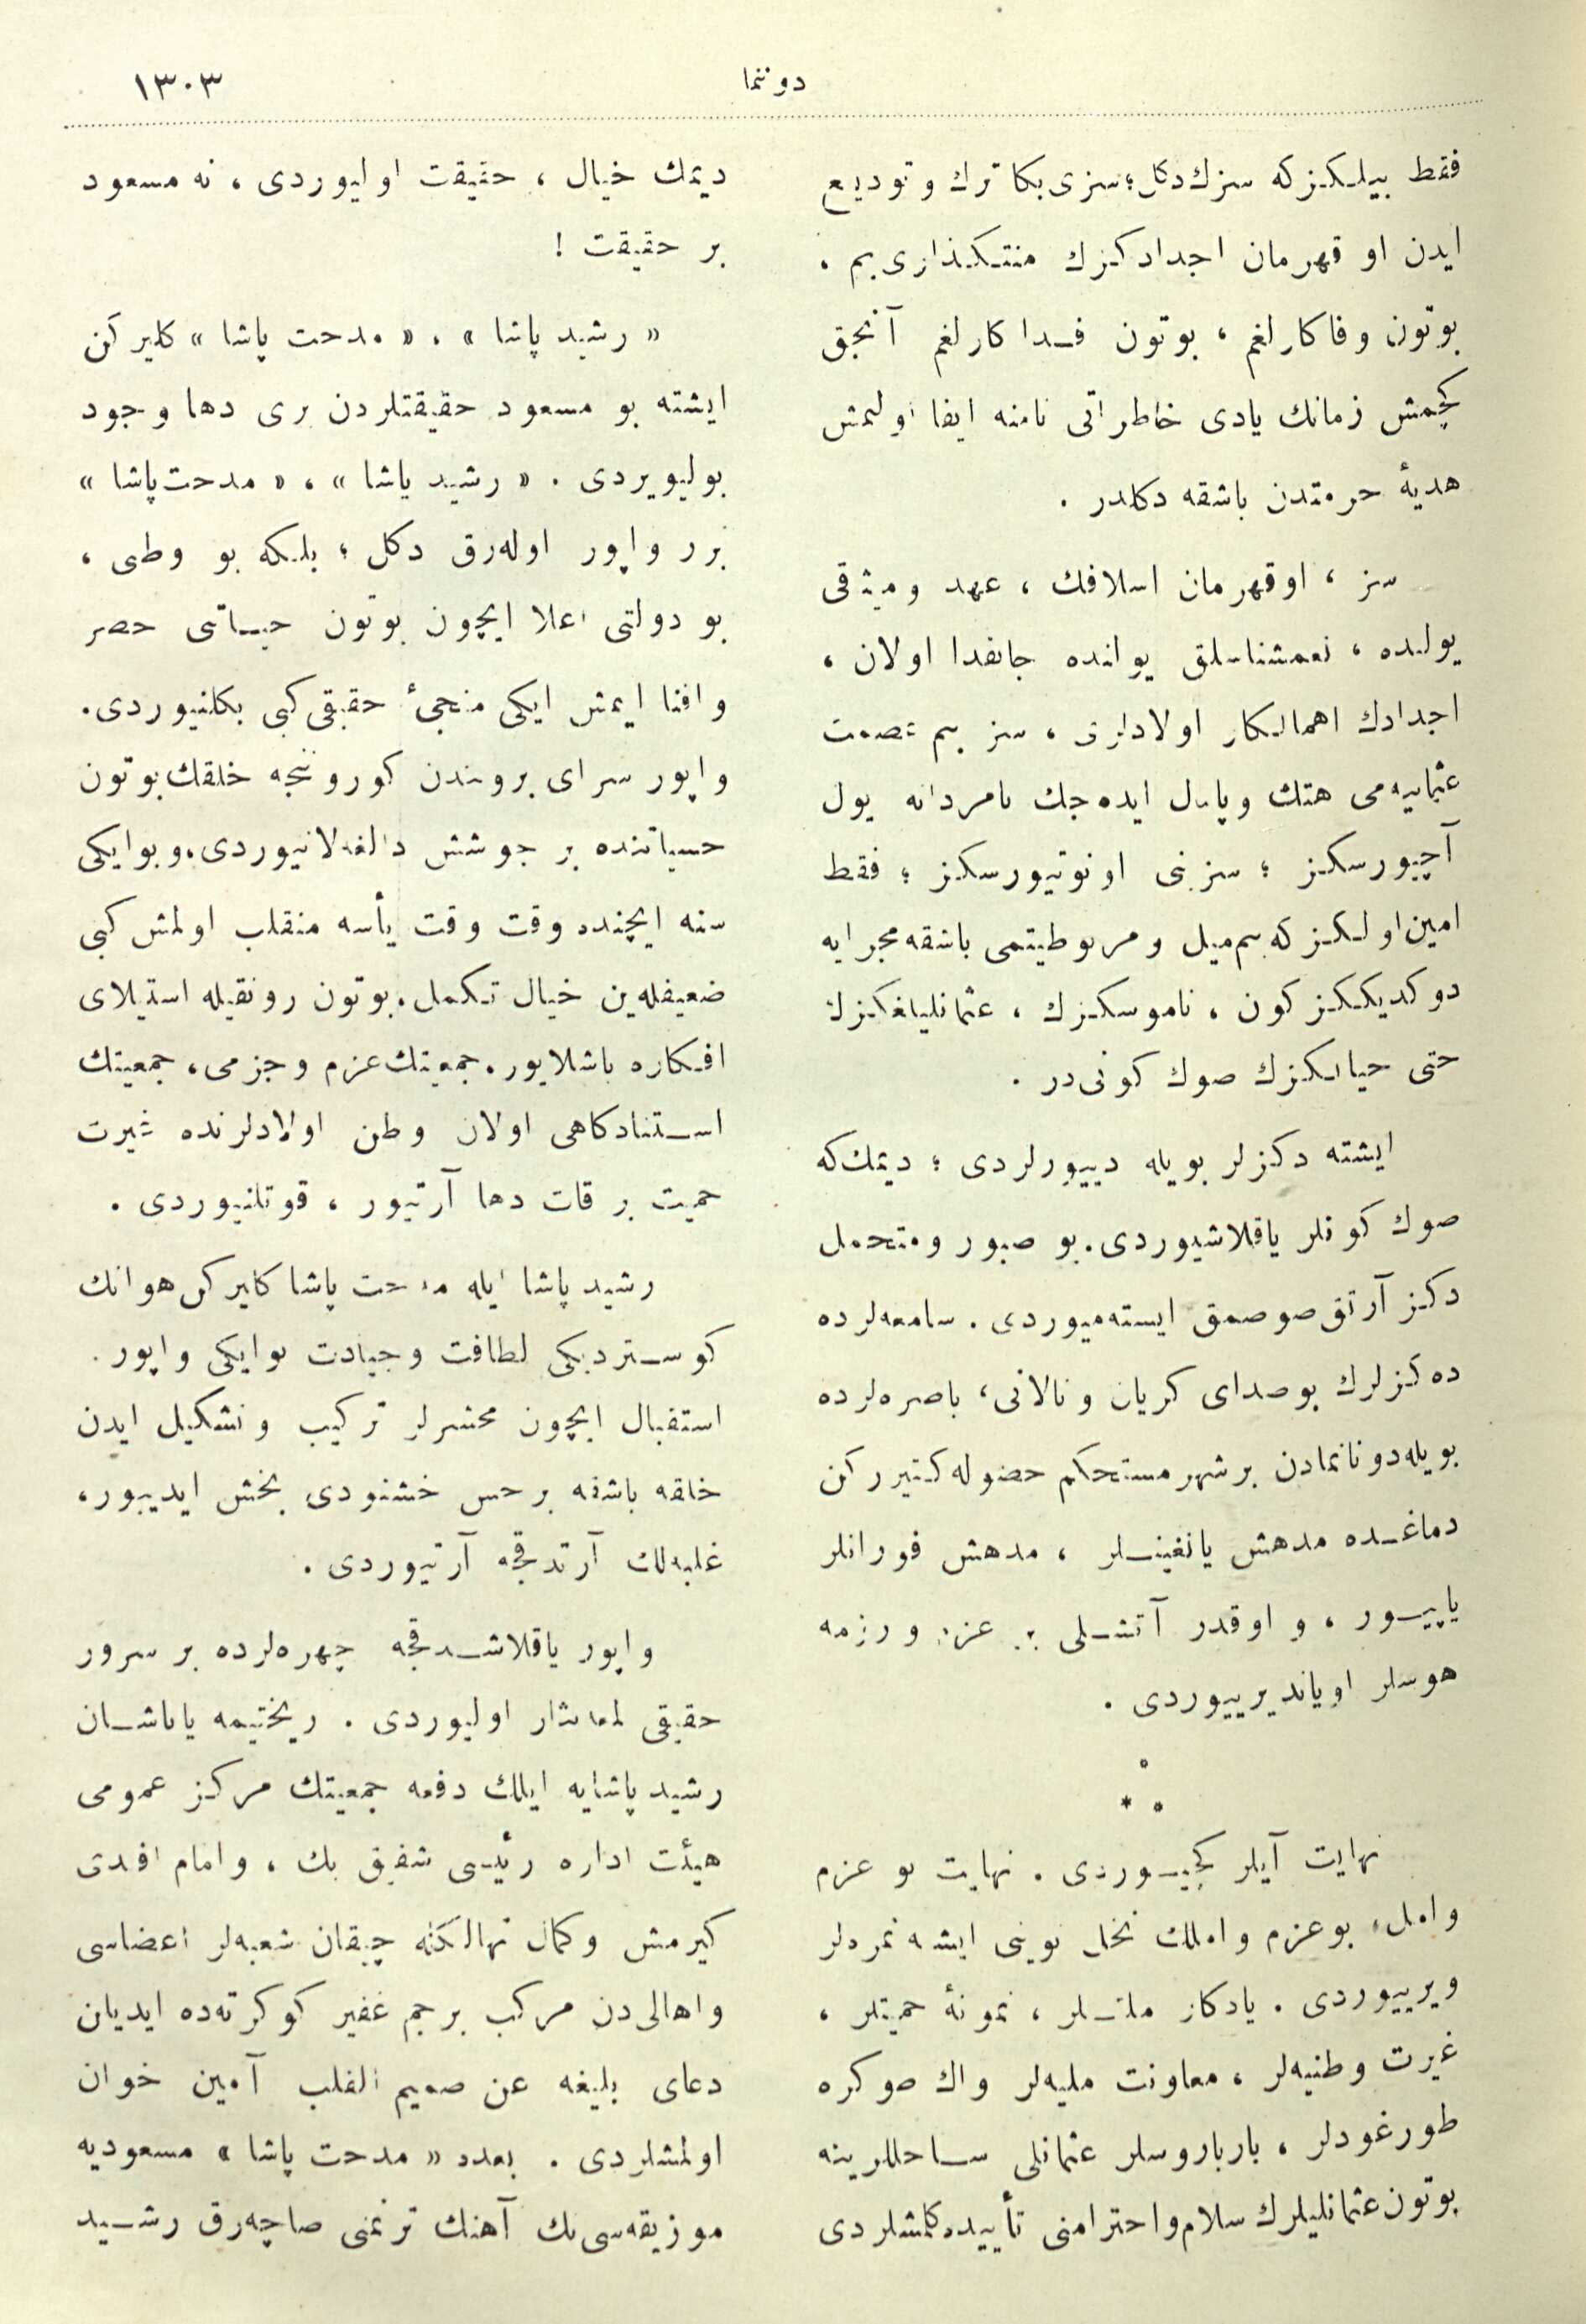 دوننما
١٣٠٣
فقط بيلكز كه سزك دكل؛ سزى بكا ترك و توديع
ايدن او قهرمان اجدادكزك منتكذارى‌يم .
بوتون وفاكارلغم ، بوتون فداكارلغم آنجق
كچمش زمانك يادى خاطراتى نامنه ايفا اولنمش
هديۀ حرمتدن باشقه دكلدر .
سز ، او قهرمان اسلافك ، عهد و ميثاقى
يولنده ، نعمشناسلق يولنده جانفدا اولان ،
اجدادك اهمالكار اولادلرى ، سز بنم عصمت
عثمانيه‌مى هتك و پامال ايده‌جك نامردانه يول
آچيورسكز ؛ سز بنى اونوتيورسكز ؛ فقط
امين اولكز كه بنم ميل و مربوطيتمى باشقه مجرايه
دوكديككز كون ، ناموسكزك ، عثمانليلغكزك
حتى حياتكزك صوك كونى‌در .
ايشته دكزلر بويله دييورلردى ؛ ديمك كه
صوك كونلر ياقلاشيوردى. بو صبور و متحمل
دكز آرتق صوصمق ايسته‌ميوردى . سامعه‌لرده
ده كزلرك بو صداى كريان و نالانى ، باصره‌لرده
بويله دونانمادن بر شهر مستحكم حضوله كتيرركن
دماغده مدهش يانغينلر ، مدهش فورانلر
ياپيور ، و اوقدر آتشلى بر عزم و رزمه
هوسلر اويانديرييوردى .
نهايت آيلر كچيوردى . نهايت بو عزم
و امل، بو عزم و املك نخل نوينى ايشه ثمره‌لر
ويرييوردى . يادكار ملتلر ، نمونۀ حميتلر ،
غيرت وطنيه‌لر ، معاونت مليه‌لر و اك صوكره
طورغودلر ، بارباروسلر عثمانلى ساحللرينه
بوتون عثمانليلرك سلام و احترامنى تأييده كلمشلردى
ديمك خيال ، حقيقت اوليوردى ، نه مسعود
بر حقيقت !
« رشيد پاشا » ، « مدحت پاشا » كليركن
ايشته بو مسعود حقيقتلردن برى دها وجود
بوليويردى . « رشيد پاشا » ، « مدحت پاشا »
برر واپور اوله‌رق دكل ؛ بلكه بو وطنى ،
بو دولتى اعلا ايچون بوتون حياتنى حصر
و افنا ايتمش ايكى منجئ حقيقى كبى بكلنيوردى.
واپور سراى بروننندن كورونجه خلقك بوتون
حسياتنده بر جوشش دالغه‌لانيوردى. و بو ايكى
سنه ايچنده وقت وقت يأسه منقلب اولمش كبى
ضعيفله‌ين خيال تكمل، بوتون رونقيله استيلاى
افكاره باشلايور. جمعيتك عزم و جزمى، جمعيتك
استنادكاهى اولان وطن اولادلرنده غيرت
حميت بر قات دها آرتيور ، قوتلنيوردى .
رشيد پاشا ايله مدحت پاشا كليركن هوانك
كوستردیكى لطافت و جيادت بو ايكى واپور.
استقبال ايچون محشرلر تركيب و تشكيل ايدن
خلقه باشقه بر حس خشنودى بخش ايدييور،
غلبه‌لك آرتدقجه آرتيوردى .
واپور ياقلاشدقجه چهره‌لرده بر سرور
حقيقى لمعه‌نثار اوليوردى . ريختيمه ياناشان
رشيد پاشايه ايلك دفعه جمعيتك مركز عمومى
هيئت اداره رئيسى شفيق بك ، و امام افندى
كيرمش و كمال تهالكله چيقان شعبه‌لر اعضاسى
و اهالى‌دن مركب بر جم غفير كوكرته‌ده ايديان
دعاى بليغه عن صميم القلب آمين خوان
اولمشلردى . بعده « مدحت پاشا » مسعوديه
موزيقه‌سى‌نك آهنك ترنمنى صاچه‌رق رشيد